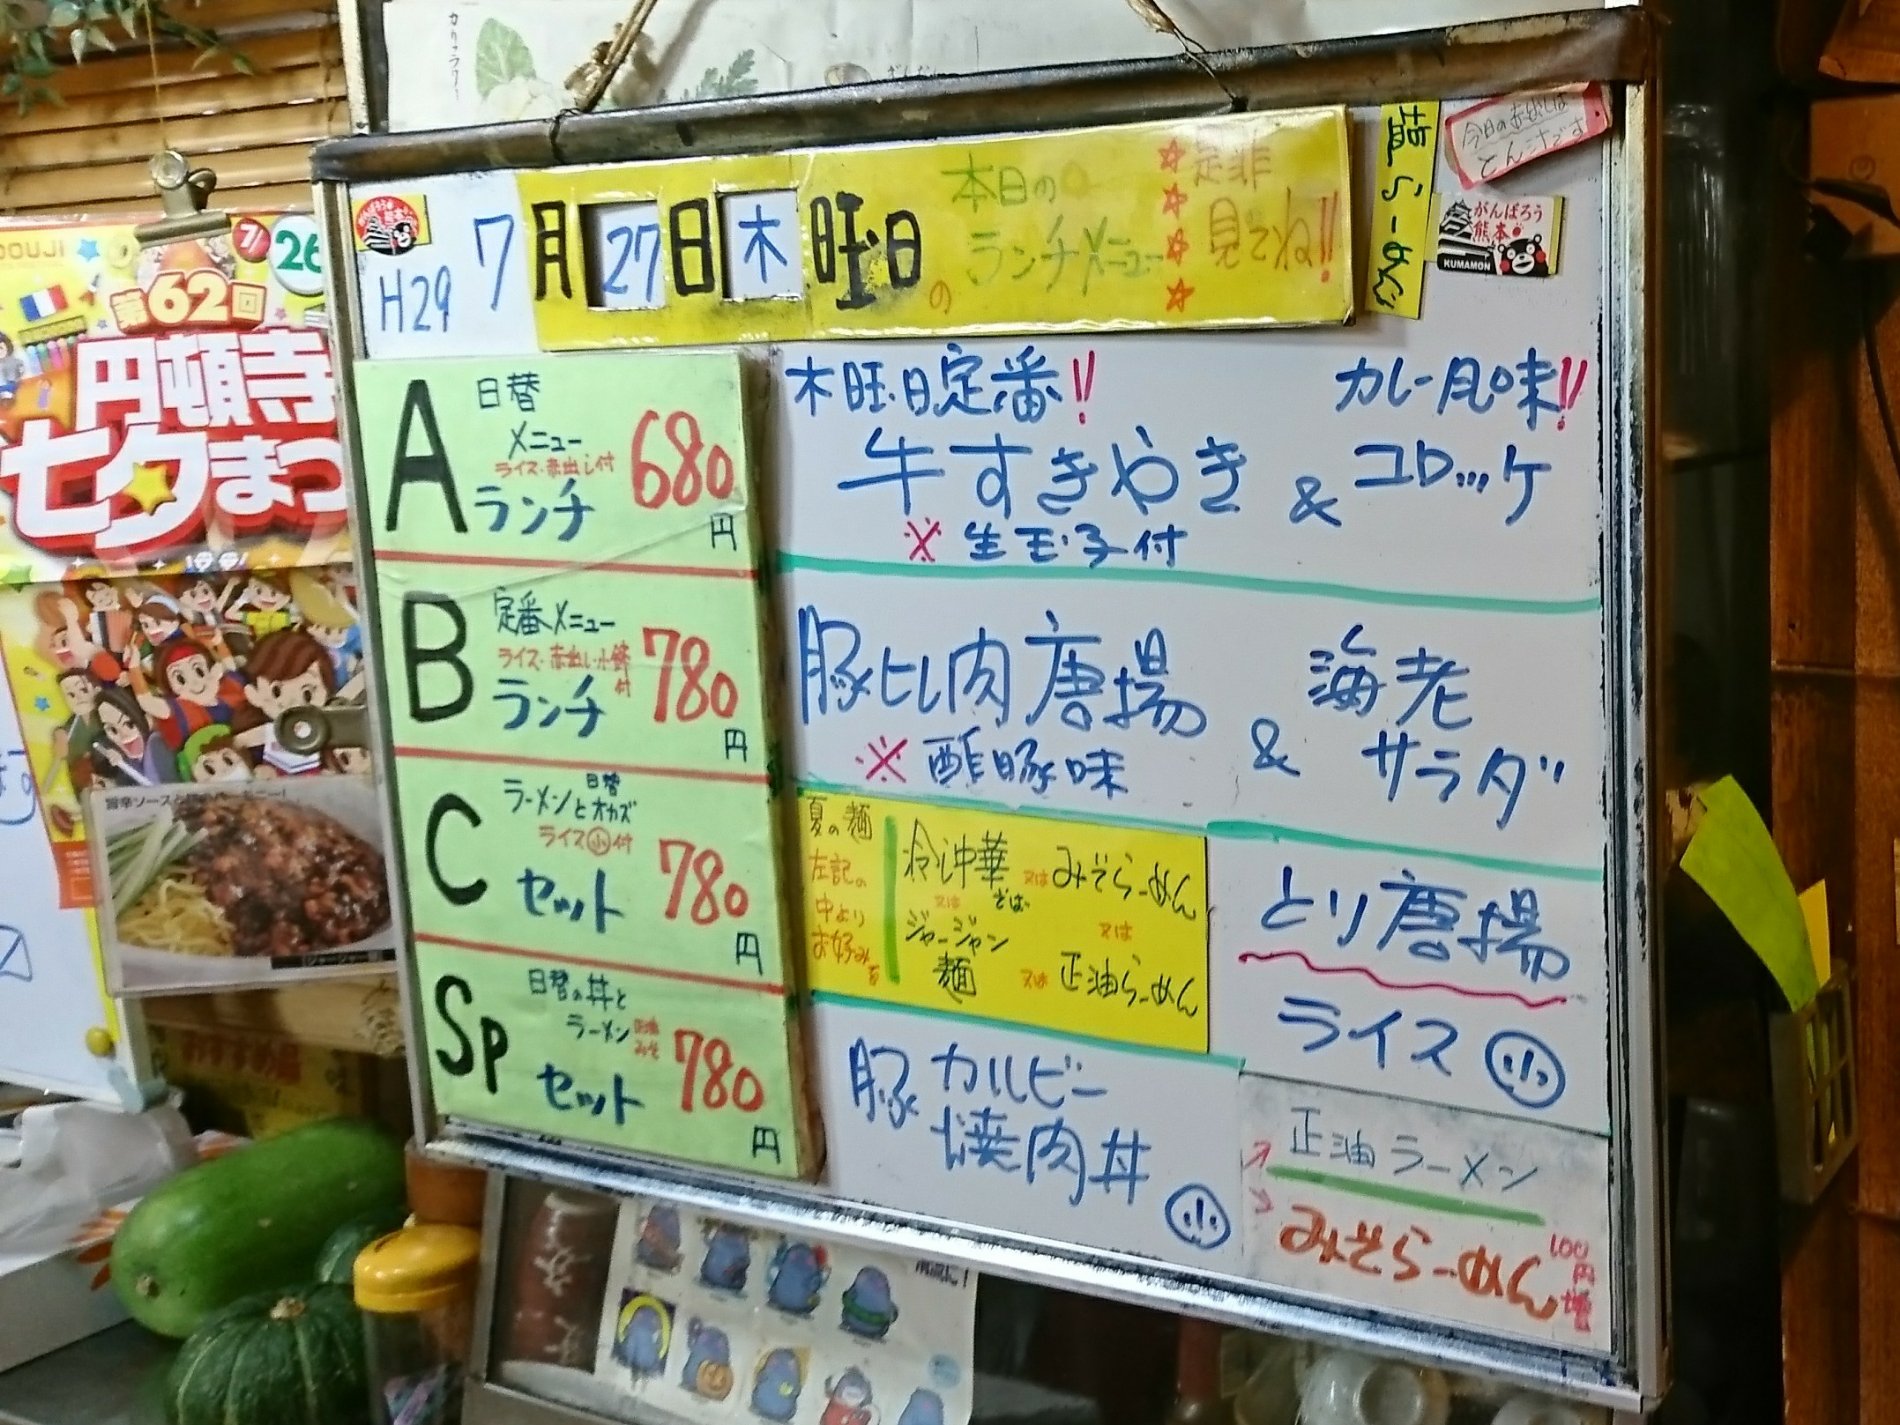 がんばろう
熊本
H29
7月27日木曜日の
本日の
ランチメニュー
是非
見てね!!
塩らーめん
今日のお出しは
とん汁です
がんばろう
熊本
KUMAMON
A
日替
メニュー
ライス・赤出し付
ランチ
680
円
木曜日定番!!
牛すきやき
※生玉子付
&
カレー風味!!
コロッケ
B
定番メニュー
ライス・赤出し・小鉢付
ランチ
780
円
豚ヒレ肉唐揚
※酢豚味
&
海老
サラダ
C
日替
ラーメンとオカズ
ライス小付
セット
780
円
夏の麺
左記の
中より
お好みを
冷し中華
又は
みそらーめん
又は
そば
ジャージャン
麺
又は
又は
正油らーめん
とり唐揚
ライス小
Sp
日替の丼と
ラーメン
正油
みそ
セット
780
円
豚カルビー
焼肉丼
小
正油ラーメン
みそらーめん
100円増
7/26
第62回
円頓寺
七夕まつ